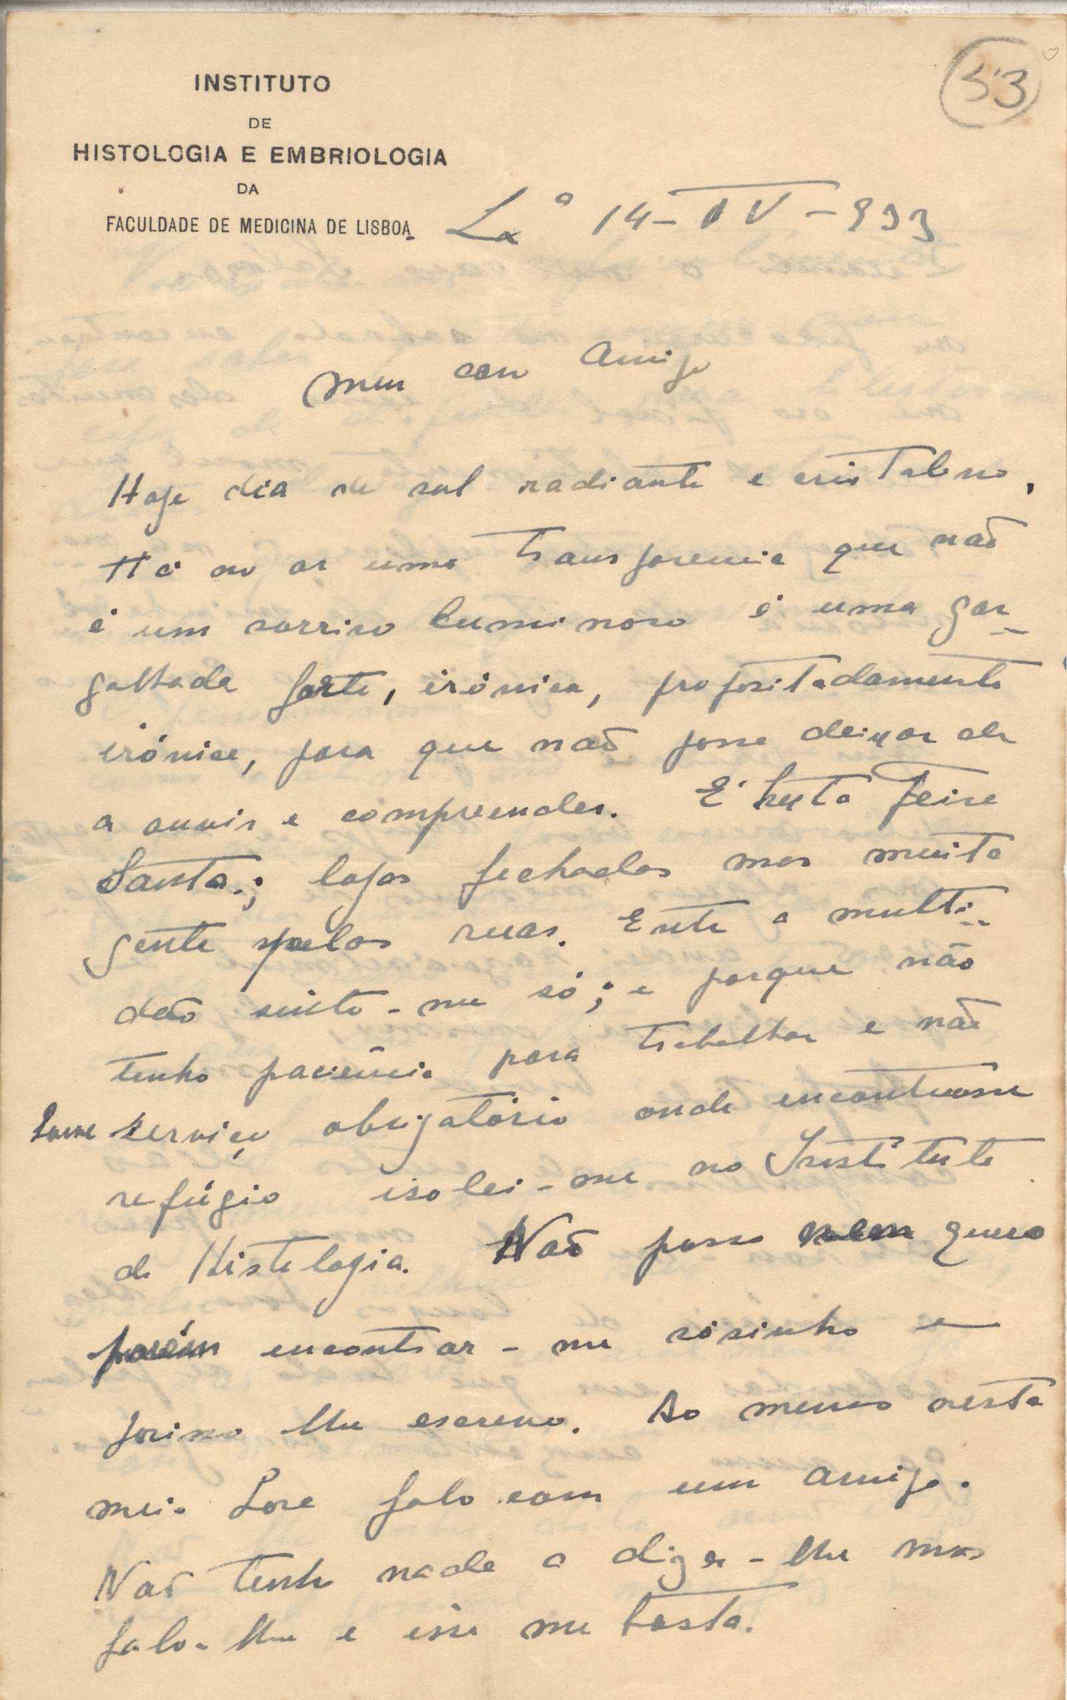 53
INSTITUTO
DE
HISTOLOGIA E EMBRIOLOGIA
DA
FACULDADE DE MEDICINA DE LISBOA
Lxª 14-IV-933
Meu caro Amigo
Hoje dia de sol radiante e cristalino,
Há no ar uma transparencia que não
é um sorriso luminoso é uma gar-
galhada forte, irónica, propositadamente
irónica, para que não posse deixar de
a ouvir e compreender. É sexta feira
Santa; lojas fechadas mas muita
gente pelas ruas. Entre a multi-
dão sinto-me só; e porque não
tenho paciência para trabalhar e não
tenho serviço obrigatório onde encontrasse
refúgio isolei-me no Instituto
de Histologia. Não posso nem quero
porém encontrar-me sósinho e
por isso lhe escrevo. Ao menos nesta
meia hora falo com um amigo.
Não tenho nada a dizer-lhe mas
falo-lhe e isso me basta.